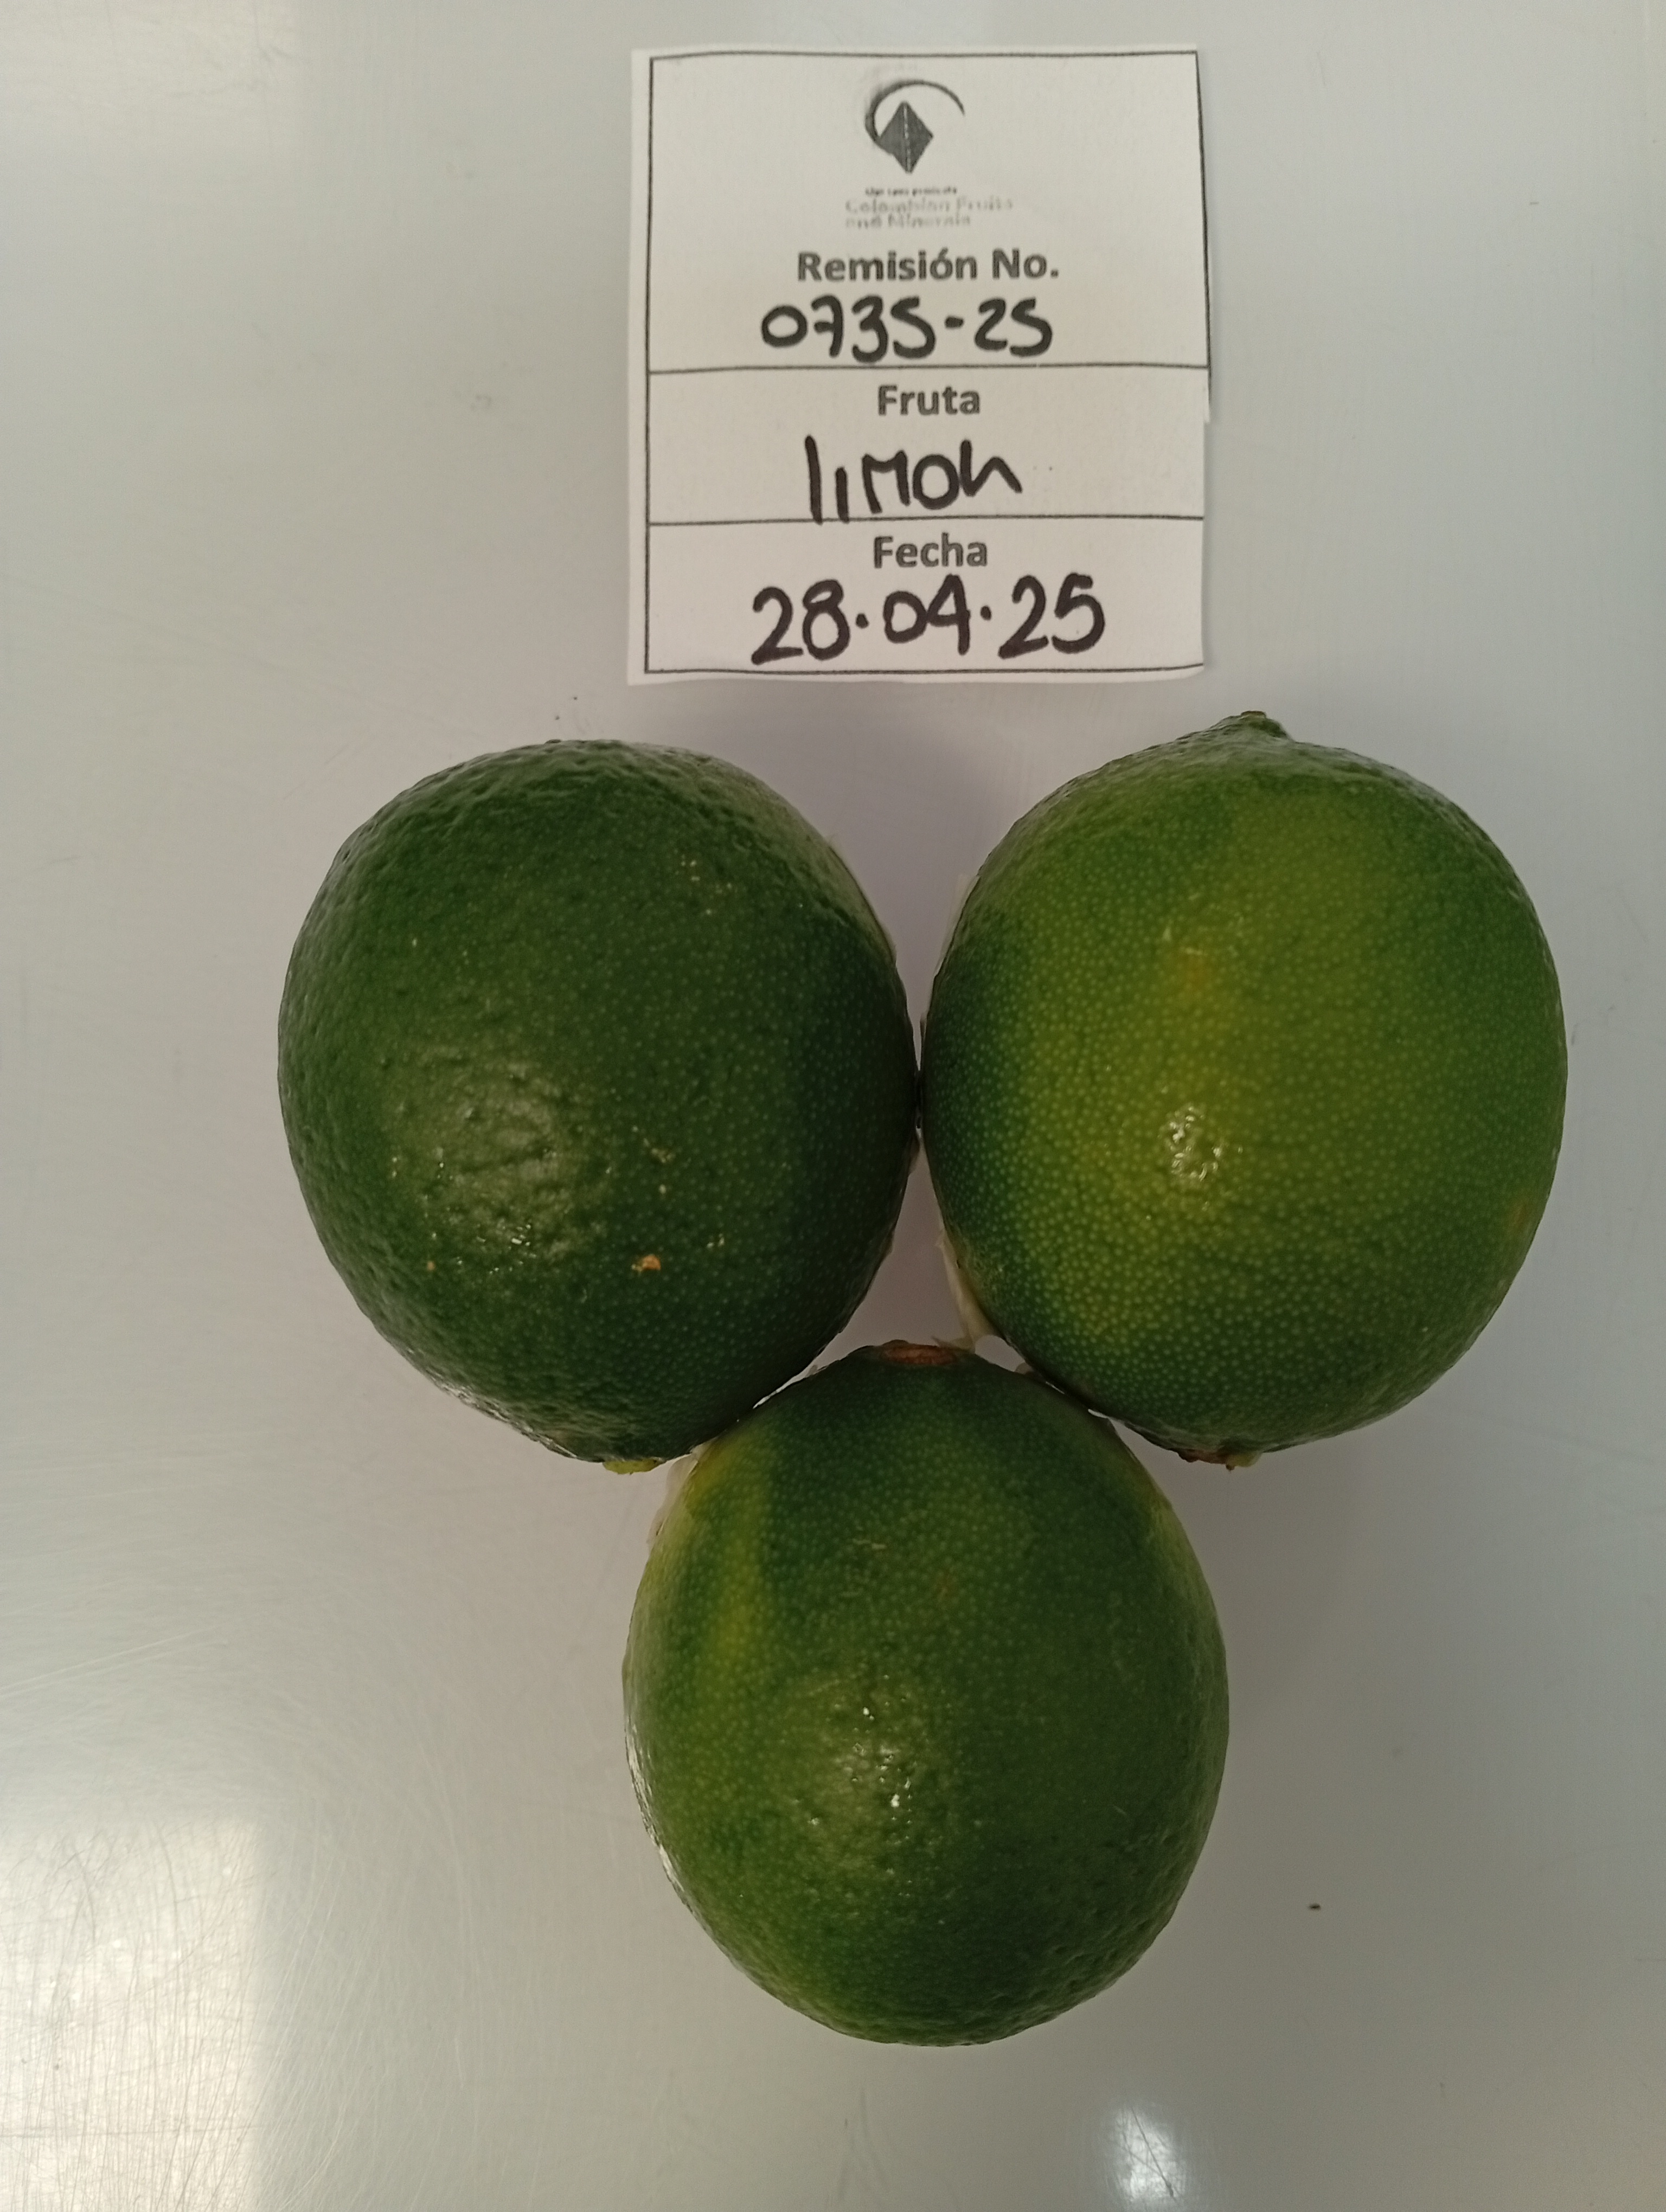 Colombian Fruits
and Minerals
Remisión No.
0735-25
Fruta
limon
Fecha
28.04.25